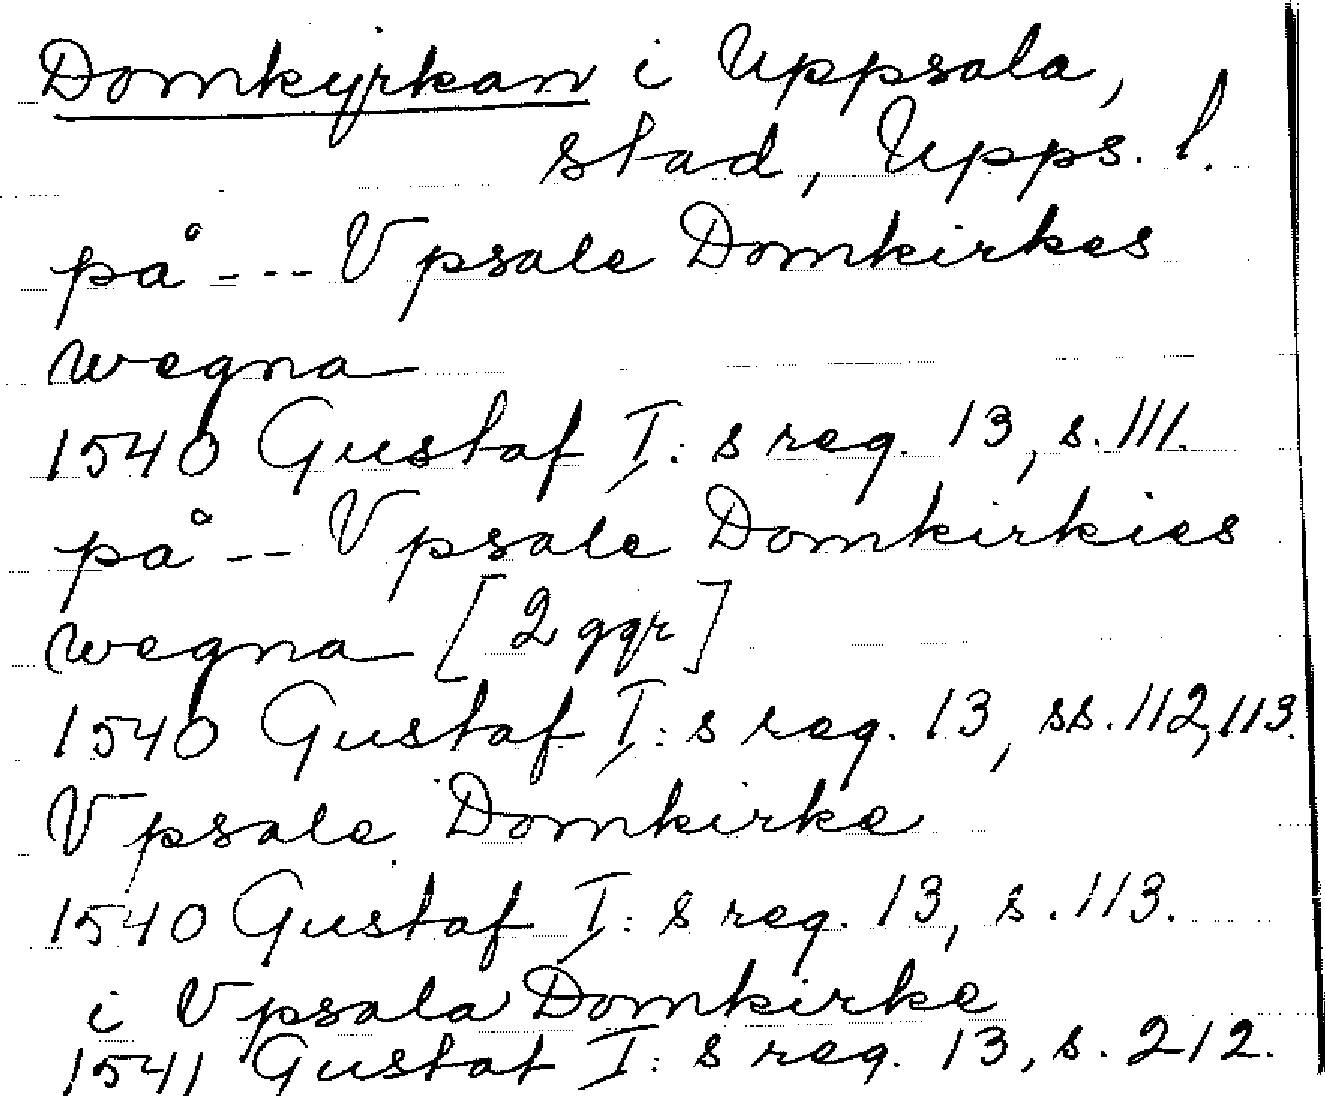 Domkyrkan i Uppsala,
stad, Upps. l.
på --- Vpsale Domkirkes
wegna
1540 Gustaf I:s reg. 13, s. 111.
på -- Vpsale Domkirkies
wegna [2 ggr]
1540 Gustaf I:s reg. 13, ss. 112, 113.
Vpsale Domkirke
1540 Gustaf I:s reg. 13, s. 113.
i Vpsala Domkirke
1541 Gustaf I:s reg. 13, s. 212.